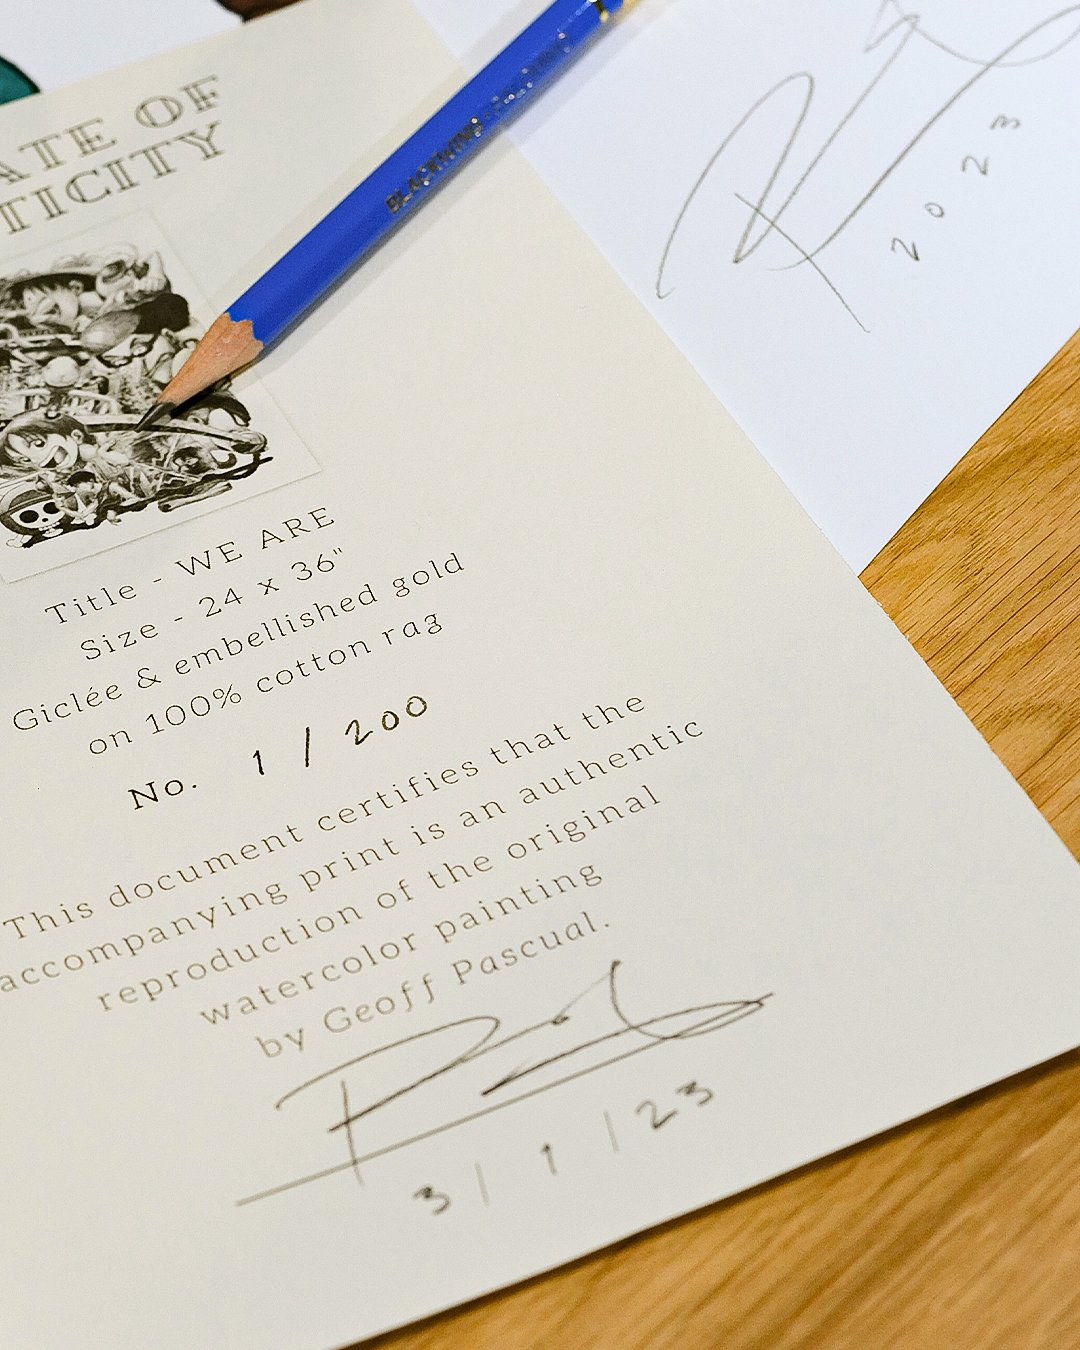 ATE OF
TICITY
BLACKWING
Title - WE ARE
Size - 24 x 36"
Giclée & embellished gold
on 100% cotton rag
No. 1 / 200
This document certifies that the
accompanying print is an authentic
reproduction of the original
watercolor painting
by Geoff Pascual.
3 / 1 / 23
2023